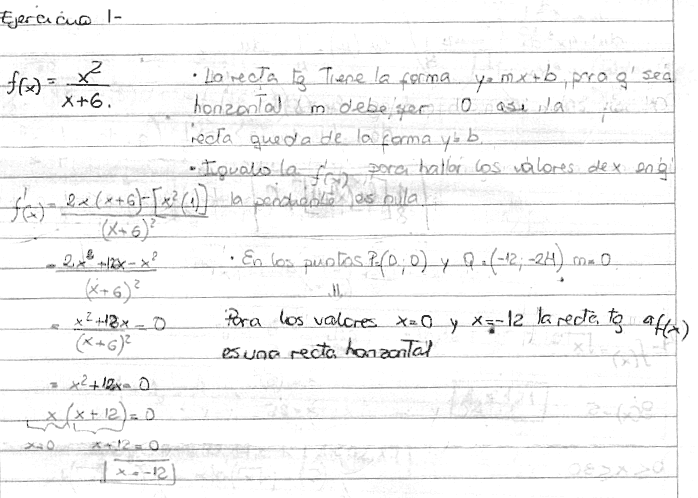 Ejercicio 1-
f(x) = x²/(x+6).
• La recta tg Tiene la forma y=mx+b, pra q' sea
horizontal m debe ser 0 asi la
recta queda de la forma y=b.
• Igualo la f'(x) para hallar los valores de x en q'
la pendiente es nula
f'(x) = 2x(x+6)-[x²(1)]/(x+6)²
= 2x²+12x-x²/(x+6)²
• En los puntos P=(0;0) y Q=(-12;-24) m=0
= x²+12x/(x+6)² = 0
Para los valores x=0 y x=-12 la recta tg a f(x)
es una recta horizontal
= x²+12x=0
x(x+12)=0
x=0 x+12=0
x=-12